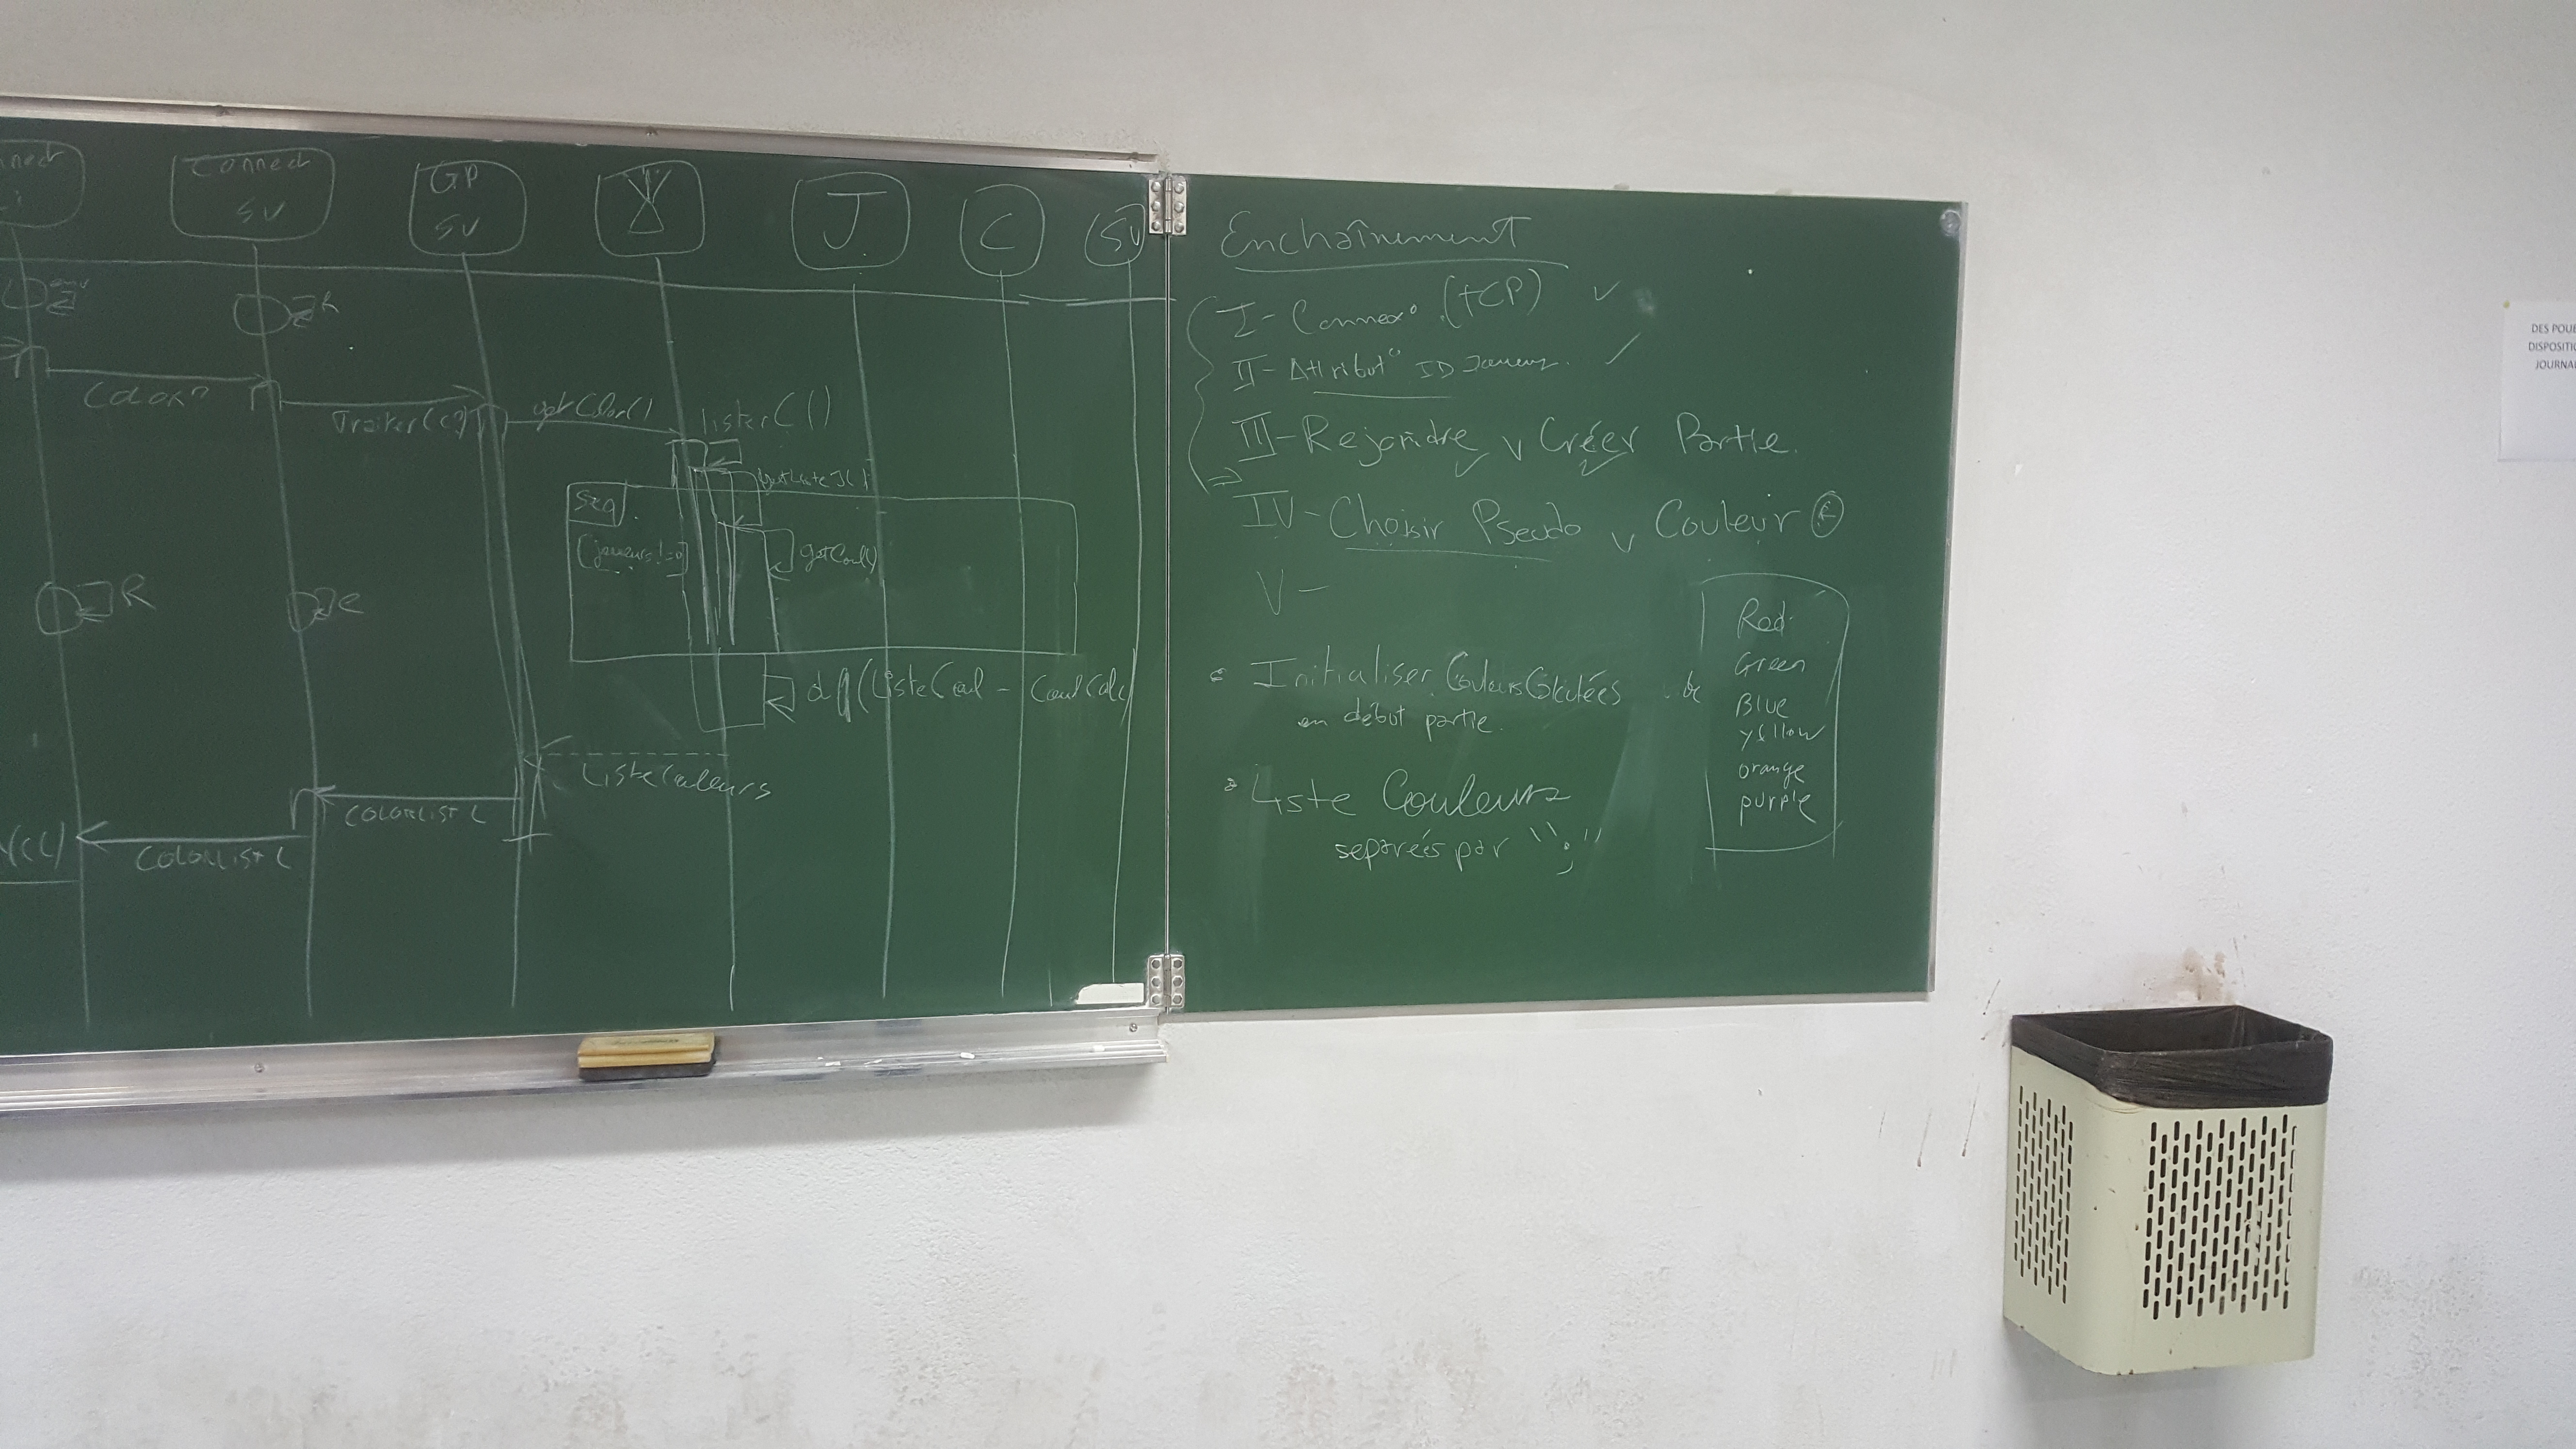 Connect
SV
GP
SV
J
C
SV
R
COLOR?
Traiter(C?)
getColor()
listerC()
getListeJ()
seq
[joueurs!=0]
getCoul()
R
ListeCoul - CoulCalc
ListeCouleurs
COLORLIST L
COLORLIST L
Enchaînement
I - Connex° (TCP) ✓
II - Attribut° ID Joueur.
III - Rejoindre v Créer Partie.
IV - Choisir Pseudo v Couleur
V -
• Initialiser
en début partie.
• Liste Couleurs
separées par ";"
Red
Green
Blue
yellow
orange
purple
DISPOSITIO
JOURNA